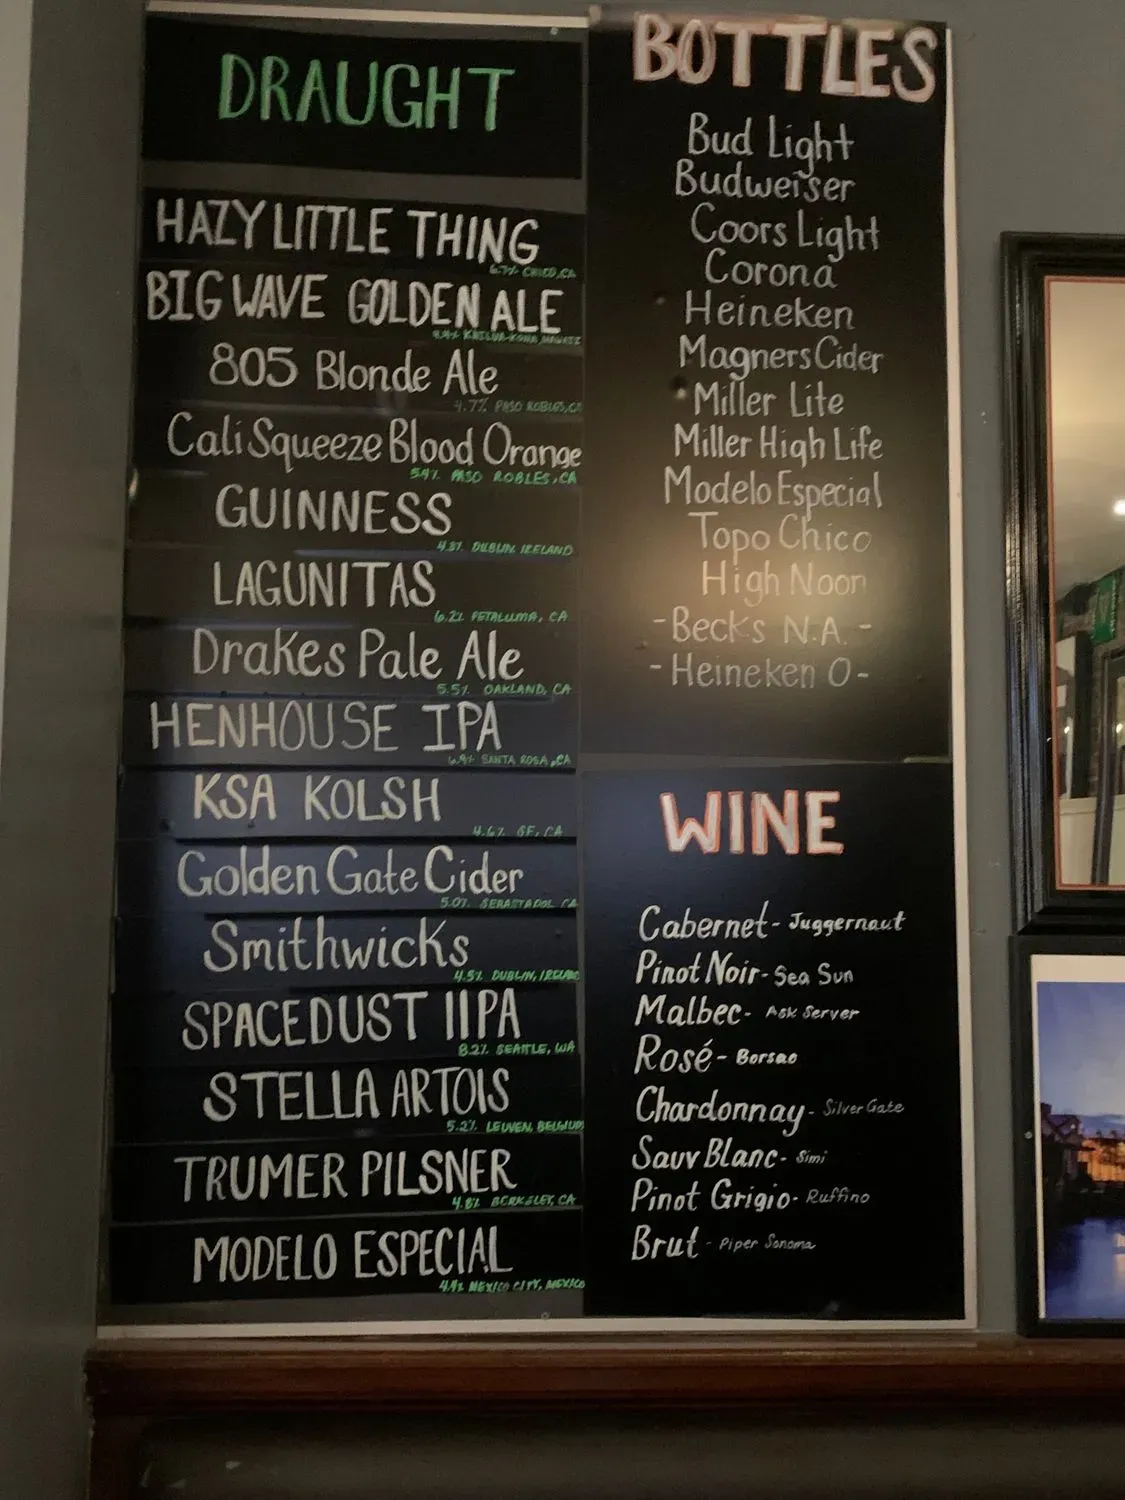 DRAUGHT
HAZY LITTLE THING
6.7% CHICO, CA
BIG WAVE GOLDEN ALE
4.4% KAILUA-KONA, HAWAII
805 Blonde Ale
4.7% PASO ROBLES, CA
Cali Squeeze Blood Orange
5.4% PASO ROBLES, CA
GUINNESS
4.3% DUBLIN, IRELAND
LAGUNITAS
6.2% PETALUMA, CA
Drakes Pale Ale
5.5% OAKLAND, CA
HENHOUSE IPA
6.9% SANTA ROSA, CA
KSA KOLSH
4.6% SF, CA
Golden Gate Cider
5.0% CA
Smithwicks
4.5% DUBLIN, IRELAND
SPACEDUST IIPA
8.2% SEATTLE, WA
STELLA ARTOIS
5.2% LEUVEN, BELGIUM
TRUMER PILSNER
4.8% BERKELEY, CA
MODELO ESPECIAL
4.4% MEXICO CITY, MEXICO
BOTTLES
Bud Light
Budweiser
Coors Light
Corona
Heineken
Magners Cider
Miller Lite
Miller High Life
Modelo Especial
Topo Chico
High Noon
-Becks N.A.-
-Heineken O-
WINE
Cabernet- Juggernaut
Pinot Noir- Sea Sun
Malbec- Ask Server
Rosé- Borsao
Chardonnay- Silver Gate
Sauv Blanc- Simi
Pinot Grigio- Ruffino
Brut- Piper Sonoma